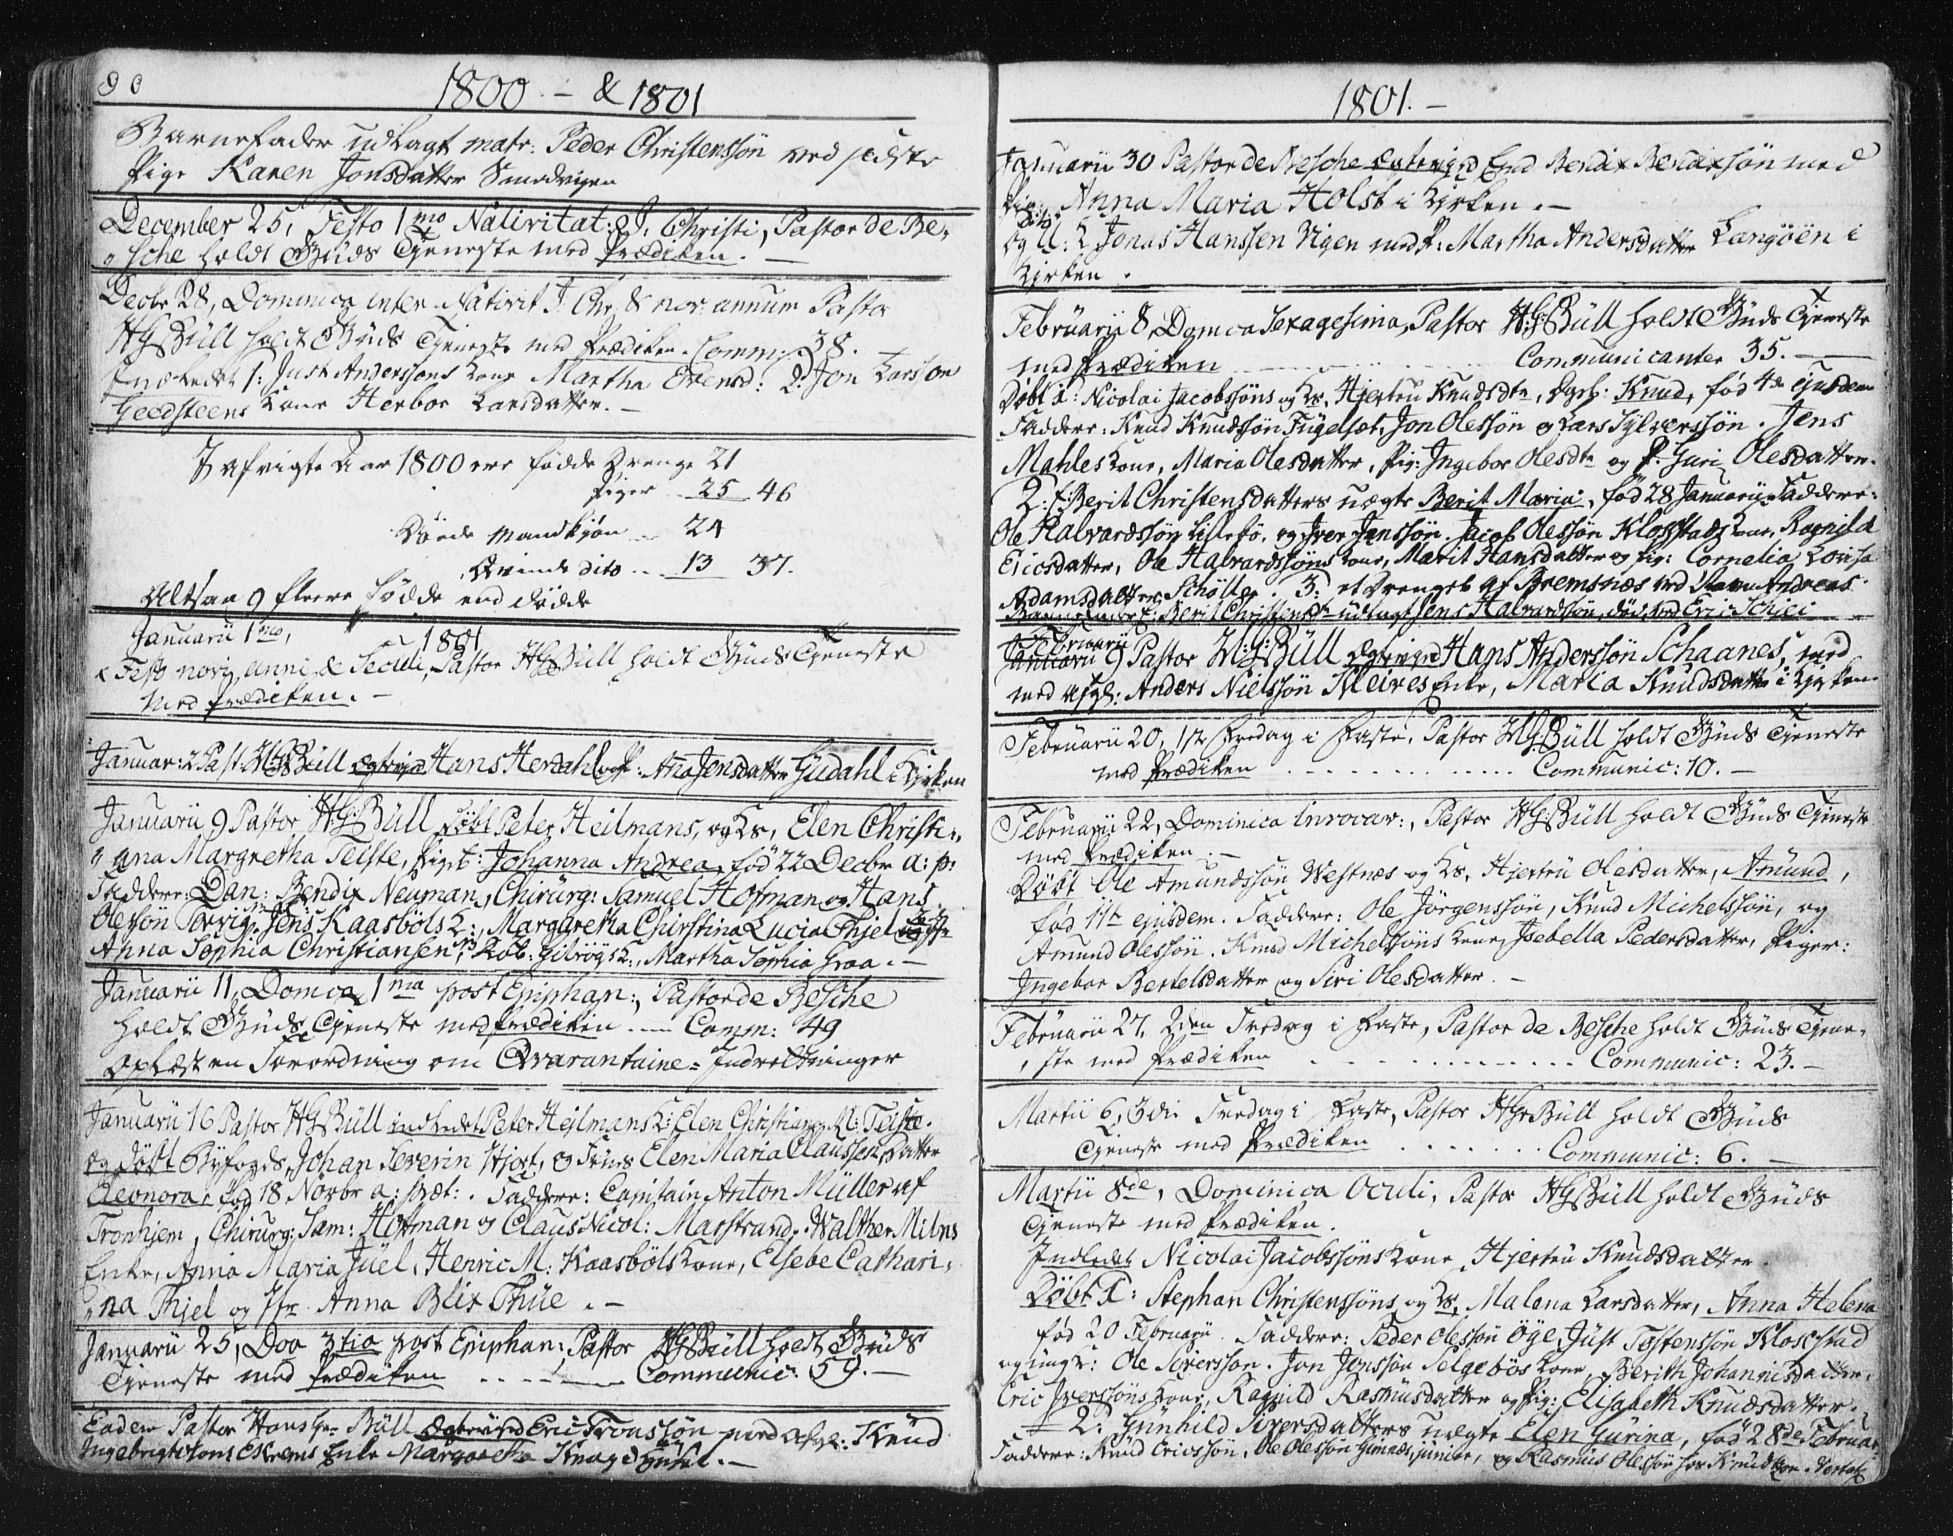 90
1800. – & 1801
Barnefader udlagt matr: Peder Christenssön ved sidste
Pige Karen Jonsdatter Smedvigen
December 25, Festo 1mo Nativitat: J. Christi, Pastor de Be-
sche holdt Guds Tjeneste med Prædiken. –
Decbr 28, Dominica inter Nativit J. Chr. & nov. annum Pastor
HGBüll holdt Guds Tjeneste med Prædiken. Comm: 38.
Indledet 1: Just Anderssöns Kone Martha Evensd: 2: Jon Larssøn
Geedsteens Kone Herbor Larsdatter. –
I afvigte Aar 1800 ere fødde Drenge 21
Piger 25 46
Døde Mandkjøn 24
Qvinde dito 13 37.
Altsaa 9 fleere fødde end dødde
1801
Januarii 1mo,
Festo novi anni & Seculi, Pastor HGBüll holdt Guds Tjeneste
med Prædiken. –
Januar: 2 Past: HGBüll Egteviet Hans Herdahl og P: Ana Jensdatter Gudahl i Kirken
Januarii 9 Pastor HGBüll døbt Peter Heilmans, og Ks, Elen Christi-
ana Margretha Teiste, Pigeb: Johanna Andrea, fød 22 Decbr a: p:
Faddere: Dan: Bendix Neuman, Chirurg: Samuel Hofman og Hans
Olesson Torvig. Jens Kaasböls K:, Margaretha Christina Lucia Thjel
Anna Sophia Christiansen, Kob: Gilröys K:, Martha Sophia Graa. –
Januarii 11, Domca 1ma post Epiphan:, Pastor de Besche
holdt Guds Tjeneste med Prædiken ---- Comm: 49
Oplæst en Forordning om Qvarantaine-Indretninger
Januarii 16 Pastor HGBüll indledet Peter Heilmans K: Elen Christiana M: Teiste.
og døbt Byfogds, Johan Severin Hjort, og Frues Elen Maria Claussens Datter
Eleonora, fød 18 Novbr a: præt: . Faddere: Capitain Anton Müller af
Tronhjem, Chirurg: Sam: Hofman og Claus Nicol: Marstrand. Walther Milns
Enke, Anna Maria Juel, Henric M: Kaasböls Kone, Elsebe Cathari-
na Thjel og Jfr Anna Blix Thue. –
Januarii 25, Doa 3tia post Epiphan: Pastor HGBüll holdt Guds
Tjeneste med Prædiken ---- Communic: 59. –
Eadem Pastor Hans Gr. Büll Egteviet Eric Tronssön med Afgl: Knud
Ingebrigtsöns Enke Margaretha Knagenhiel. –
1801. –
Januarii 30 Pastor de Besche Egteviet Emd Bendix Bendixsön med
Pige Anna Maria Holst i Kirken. –
Og U: K Jonas Hanssen Vigen med P: Martha Andersdatter Langøen i
Kirken.
Februarii 8, Domca Sexagesima, Pastor HGBüll holdt Guds Tjeneste
med Prædiken ---- Communicanter 35. –
Døbt 1: Nicolai Jacobssöns og Ks, Hjertru Knudsdtr, Dgb: Knud, fød 4de ejusdem
Faddere: Knud Knudssön Fugelsæt, Jon Olessön og Lars Sylversson. Jens
Mahles Kone, Maria Olesdatter, Pig: Ingebor Olesdtr og P: Guri Olesdatter.
2: P: Berit Christensdatters uægte Berit Maria, fød 28 Januarii Faddere:
Ole Halvardssøn Lillefo, og Iver Jenssøn. Jacob Olessøn Klokstads Kone, Ragnild
Ericsdatter, Ole Halvardssøns Kone, Marit Hansdatter og Pig: Cornelia Lovisa
Adamsdatter Schøller. 3: et Drengeb. af Bremsnæs ved Navn Andreas.
Barnefader t: Berit Christensdtr udlagt Jens Halvardssön, død ved Eric Schjei
Februarii
Januarii 9 Pastor H:G:Büll Egteviet Hans Anderssön Schaanes, med
med afgl: Anders Nielssön Kleives Enke, Maria Knudsdatter i Kirken.
Februarii 20, 1ste Fredag i Faste, Pastor HGBüll holdt Guds Tjeneste
med Prædiken ---- Communic: 10. –
Februarii 22, Dominica Invocav:, Pastor HGBüll holdt Guds Tjeneste
med Prædiken. –
Døbt Ole Amundssøn Westnæs og Ks, Hjertru Olesdatter, Amund,
fød 11te ejusdem. Faddere: Ole Jörgenssön, Knud Michelssön, og
Amund Olessön. Knud Michelssöns Kone, Isebella Pedersdatter, Piger:
Ingebor Bertelsdatter og Siri Olesdatter. –
Februarii 27, 2den Fredag i Faste, Pastor de Besche holdt Guds Tjene-
ste med Prædiken ---- Communic: 23. –
Martii 6, 3die Fredag i Faste, Pastor HGBüll holdt Guds
Tjeneste med Prædiken ---- Communic: 6. –
Martii 8de, Dominica Oculi, Pastor HGBüll holdt Guds
Tjeneste med Prædiken.
Indledet Nicolai Jacobssöns Kone, Hjertru Knudsdatter.
Døbt 1: Stephan Christenssöns og Ks, Malena Larsdatter, Anna Helena
fød 20 Februarii. Faddere: Peder Olessön Öye, Just Tostenssön Klocstad
og ung K: Ole Siverssøn. Jon Jonssön Selgebös Kone, Berith Johannisdatter,
Eric Iverssöns Kone, Ragnild Rasmusdatter og Pig: Elisabeth Knudsdatter.
2: Gunhild Siversdatters uægte Elen Gurina, fød 28de Februar.
Faddere: Knud Ericssön, Ole Olessön Gimnæs, junior, og Rasmus Olessön